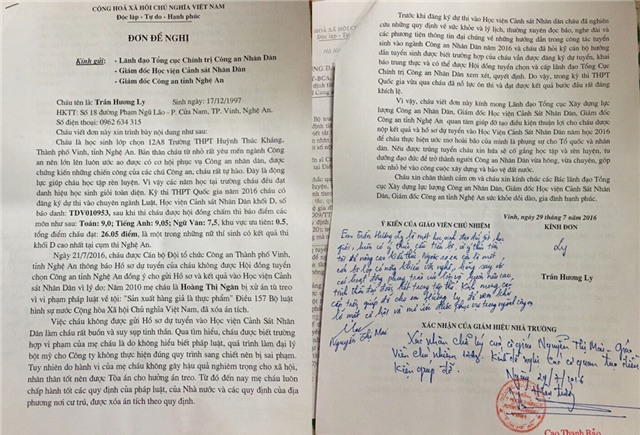 CỘNG HOÀ XÃ HỘI CHỦ NGHĨA VIỆT NAM
Độc lập - Tự do - Hạnh phúc
ĐƠN ĐỀ NGHỊ
Kính gửi: - Lãnh đạo Tổng cục Chính trị Công an Nhân Dân
- Giám đốc Học viện Cảnh sát Nhân Dân
- Giám đốc Công an tỉnh Nghệ An
Cháu tên là: Trần Hương Ly Sinh ngày: 17/12/1997
HKTT: Số 18 đường Phạm Ngũ Lão - P. Cửa Nam, TP. Vinh, Nghệ An.
Số điện thoại: 0962 634 315
Cháu viết đơn này xin trình bày nội dung như sau:
Cháu là học sinh lớp 12A8 Trường THPT Huỳnh Thúc Kháng,
Thành phố Vinh, tỉnh Nghệ An. Bản thân cháu từ nhỏ rất yêu mến ngành Công
an nên lớn lên luôn ước ao được có cơ hội phục vụ Công an nhân dân, được
chứng kiến những chiến công của các chú Công an, cháu rất tự hào. Đây là động
lực giúp cháu học tập rèn luyện. Vì vậy các năm học tại trường cháu đều đạt
danh hiệu học sinh giỏi toàn diện. Kỳ thi THPT Quốc gia năm 2016 cháu có
đăng ký dự thi vào chuyên ngành Luật, Học viện Cảnh sát Nhân Dân khối D, số
báo danh: TDV010953, sau khi thi cháu được hội đồng chấm thi báo điểm các
môn như sau: Toán: 9,0; Tiếng Anh: 9,05; Ngữ Văn: 7,5, khu vực ưu tiên: 0.5,
tổng điểm cháu đạt: 26.05 điểm, là một trong những nữ thí sinh có kết quả thi
khối D cao nhất tại cụm thi Nghệ An.
Ngày 21/7/2016, cháu được Cán bộ Đội tổ chức Công an Thành phố Vinh,
tỉnh Nghệ An thông báo Hồ sơ dự tuyển của cháu không được Hội đồng tuyển
chọn Công an tỉnh Nghệ An đồng ý cho gửi Hồ sơ và kết quả vào Học viện Cảnh
sát Nhân Dân vì lý do: Năm 2010 mẹ cháu là Hoàng Thị Ngân bị xử án tù treo
vì vi phạm pháp luật về tội: "Sản xuất hàng giả là thực phẩm" Điều 157 Bộ luật
hình sự nước Cộng hòa Xã hội Chủ nghĩa Việt Nam, đã xóa án tích.
Việc cháu không được gửi Hồ sơ vào Học viện Cảnh Sát Nhân Dân
làm cháu rất buồn và suy sụp tinh thần. Qua tìm hiểu, cháu được biết trường
hợp vi phạm của mẹ cháu là do không hiểu biết pháp luật, quá trình làm đại lý
bột mỳ cho Công ty không thực hiện đúng quy trình sang chiết nên bị sai phạm.
Tuy nhiên do hành vi của mẹ cháu không gây hậu quả nghiêm trọng cho xã hội,
nhân thân tốt nên được Tòa án cho hưởng án treo. Từ đó đến nay mẹ cháu luôn
chấp hành tốt các quy định của pháp luật, của Nhà nước và các quy định của địa
phương nơi cư trú, được xóa án tích theo quy định.
Trước khi đăng ký dự thi vào Học viện Cảnh sát Nhân Dân cháu đã nghiên
cứu những quy định về sức khỏe và lý lịch, thường xuyên đọc báo, nghe đài và
các phương tiện thông tin đại chúng về những hướng dẫn trong công tác tuyển
sinh vào ngành Công an Nhân Dân năm 2016 và cháu đã hỏi kỹ cán bộ hướng
dẫn tuyển sinh được biết trường hợp của cháu vẫn được đăng ký dự tuyển, khai
báo trung thực và có thể được Hội đồng tuyển chọn và cấp lãnh đạo Tổng Cục
Chính trị Công an Nhân Dân xem xét, quyết định. Do vậy, trong kỳ thi THPT
Quốc gia vừa qua cháu đã nỗ lực ôn thi và đạt được kết quả bước đầu rất đáng
khích lệ.
Vì vậy, cháu viết đơn này kính mong Lãnh đạo Tổng Cục Xây dựng lực
lượng Công an Nhân Dân, Giám đốc Học viện Cảnh Sát Nhân Dân, Giám đốc
Công an tỉnh Nghệ An, quan tâm giúp đỡ tạo điều kiện thuận lợi cho cháu được
nộp kết quả và hồ sơ dự tuyển vào Học viện Cảnh sát Nhân Dân năm học 2016
để cháu thực hiện ước mơ hoài bão của mình là phụng sự cho Tổ quốc và nhân
dân. Nếu được trúng tuyển cháu xin hứa sẽ cố gắng học tập và rèn luyện, tu
dưỡng đạo đức để trở thành người Công an Nhân Dân vừa hồng, vừa chuyên, góp
sức nhỏ bé vào công cuộc xây dựng và bảo vệ đất nước.
Cháu xin chân thành cảm ơn và cháu xin kính chúc các Bác lãnh đạo Tổng
cục Xây dựng lực lượng Công an Nhân Dân, Giám đốc Học viện Cảnh Sát Nhân
Dân, Giám đốc Công an tỉnh Nghệ An sức khỏe dồi dào, gia đình hạnh phúc.
Vinh, ngày 29 tháng 7 năm 2016
Ý KIẾN CỦA GIÁO VIÊN CHỦ NHIỆM KÍNH ĐƠN
Em Trần Hương Ly là một học sinh
Ly
Trần Hương Ly
Mai
Nguyễn Thị Mai
XÁC NHẬN CỦA GIÁM HIỆU NHÀ TRƯỜNG
Xác nhận chữ ký của cô giáo Nguyễn Thị Mai - Giáo
viên chủ nhiệm 12A8. Kính đề nghị các cơ quan tạo điều
kiện giúp đỡ.
Ngày 29/7/2016
Cao Thanh Bảo